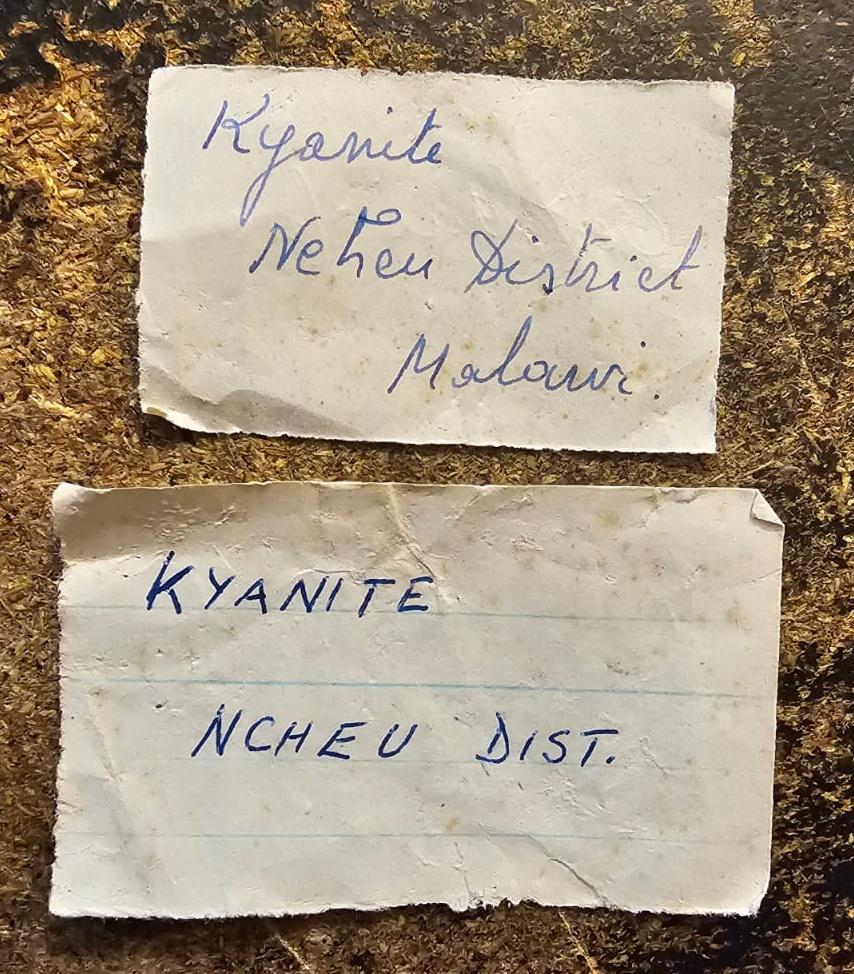 Kyanite
Ncheu District
Malawi.
KYANITE
NCHEU DIST.